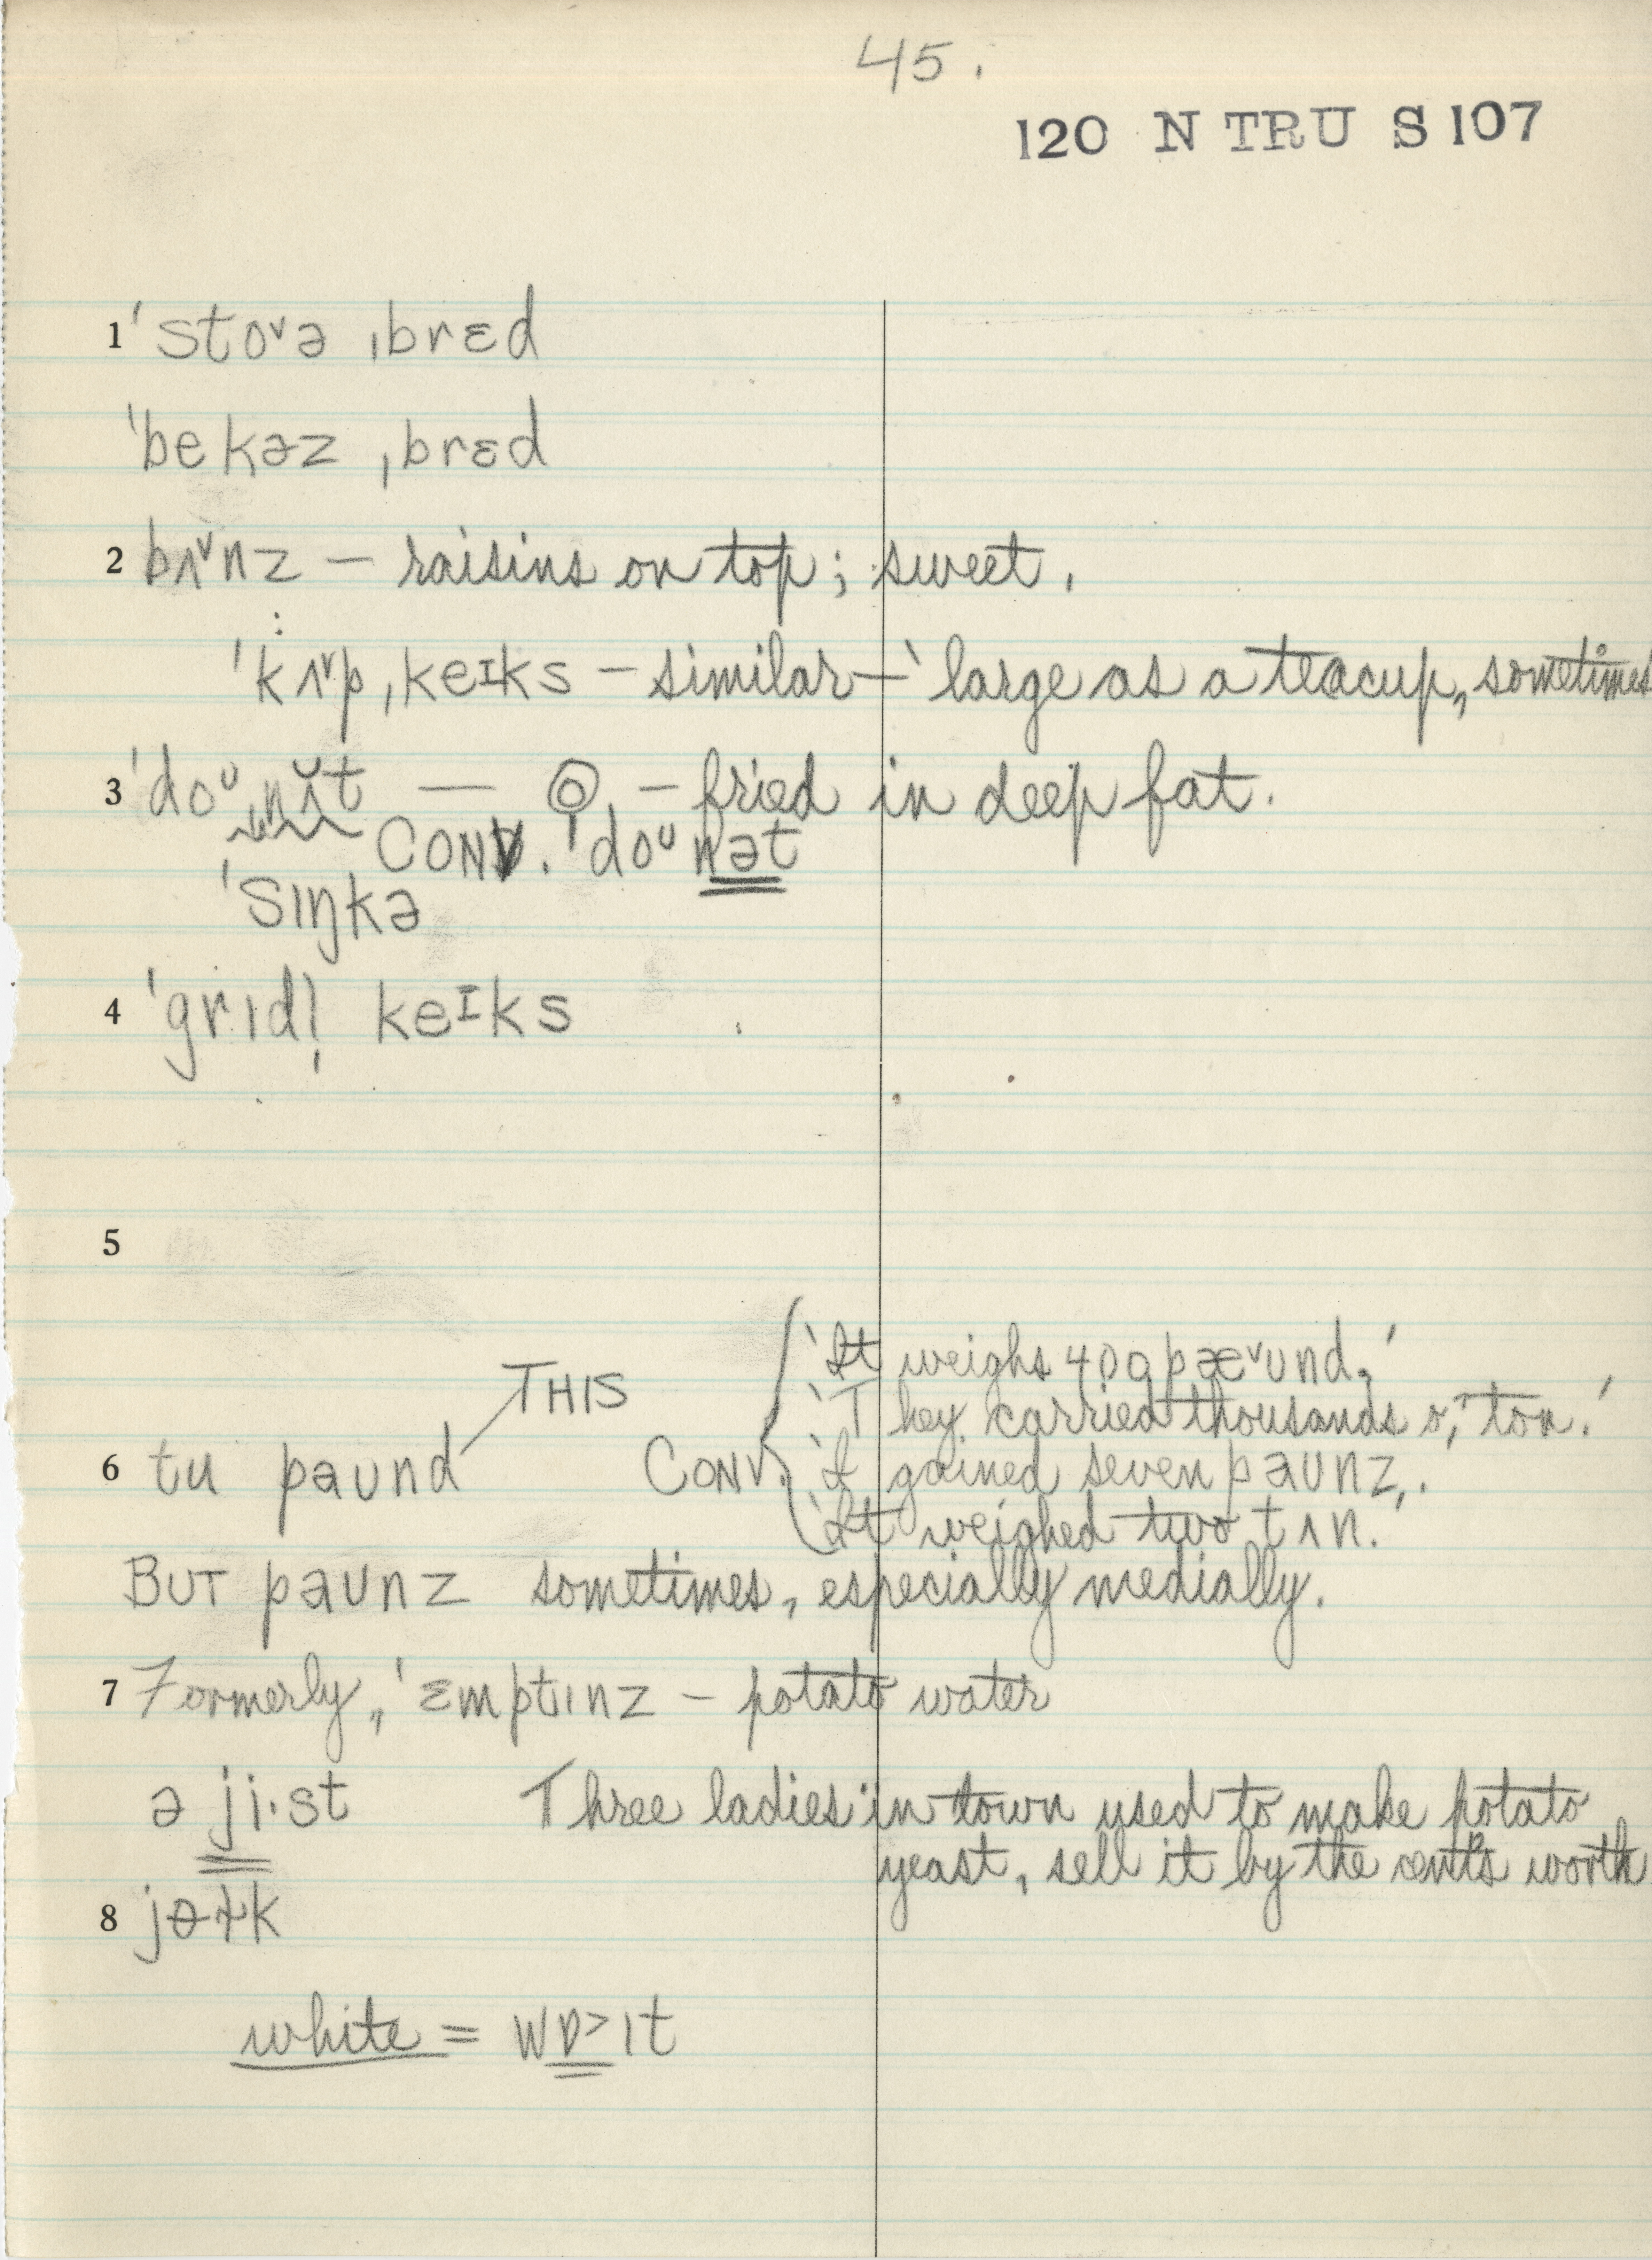 45.
120 N TRU S 107
1 ˈstoᵛə ˌbrɛd
ˈbekəz ˌbrɛd
2 bʌᵛnz – raisins on top; sweet.
ˈkʌᵛp ˌkeɪks – similar – large as a teacup, sometimes
3 ˈdoᶷ ˌnʌ̆t — – fried in deep fat.
CONV. ˈdoᶷ nət
ˈsɪŋkə
4 ˈgrɪdl̩ keᴵks
5
THIS
'It weighs 400 pæᵛʊnd.'
'They carried thousands o' ton.'
6 tu paʊnd CONV. 'I gained seven paʊnz.'
'It weighed two tʌn.'
BUT paʊnz sometimes, especially medially.
7 Formerly, ˈɛmptɪnz – potato water
ə ji·st Three ladies in town used to make potato
yeast, sell it by the cent's worth
8 jɵɫk
white = wɒ>ɪt